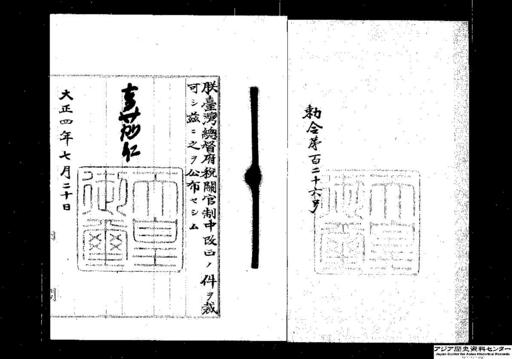 勅令第百二十六号
朕臺灣總督府税關官制中改正ノ件ヲ裁
可シ玆ニ之ヲ公布セシム
嘉仁
天皇御璽
大正四年七月二十日
アジア歴史資料センター
Japan Center for Asian Historical Records